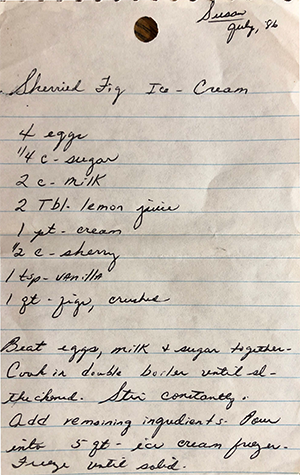 Susan
July, 86
Sherried Fig Ice-Cream
4 eggs
1/4 c - sugar
2 c - milk
2 Tbl. lemon juice
1 pt - cream
1/2 c - sherry
1 tsp - vanilla
1 qt - figs, crushed
Beat eggs, milk & sugar together.
Cook in double boiler until sl-
thickened. Stir constantly.
Add remaining ingredients. Pour
into 5 qt - ice cream freezer.
Freeze until solid.